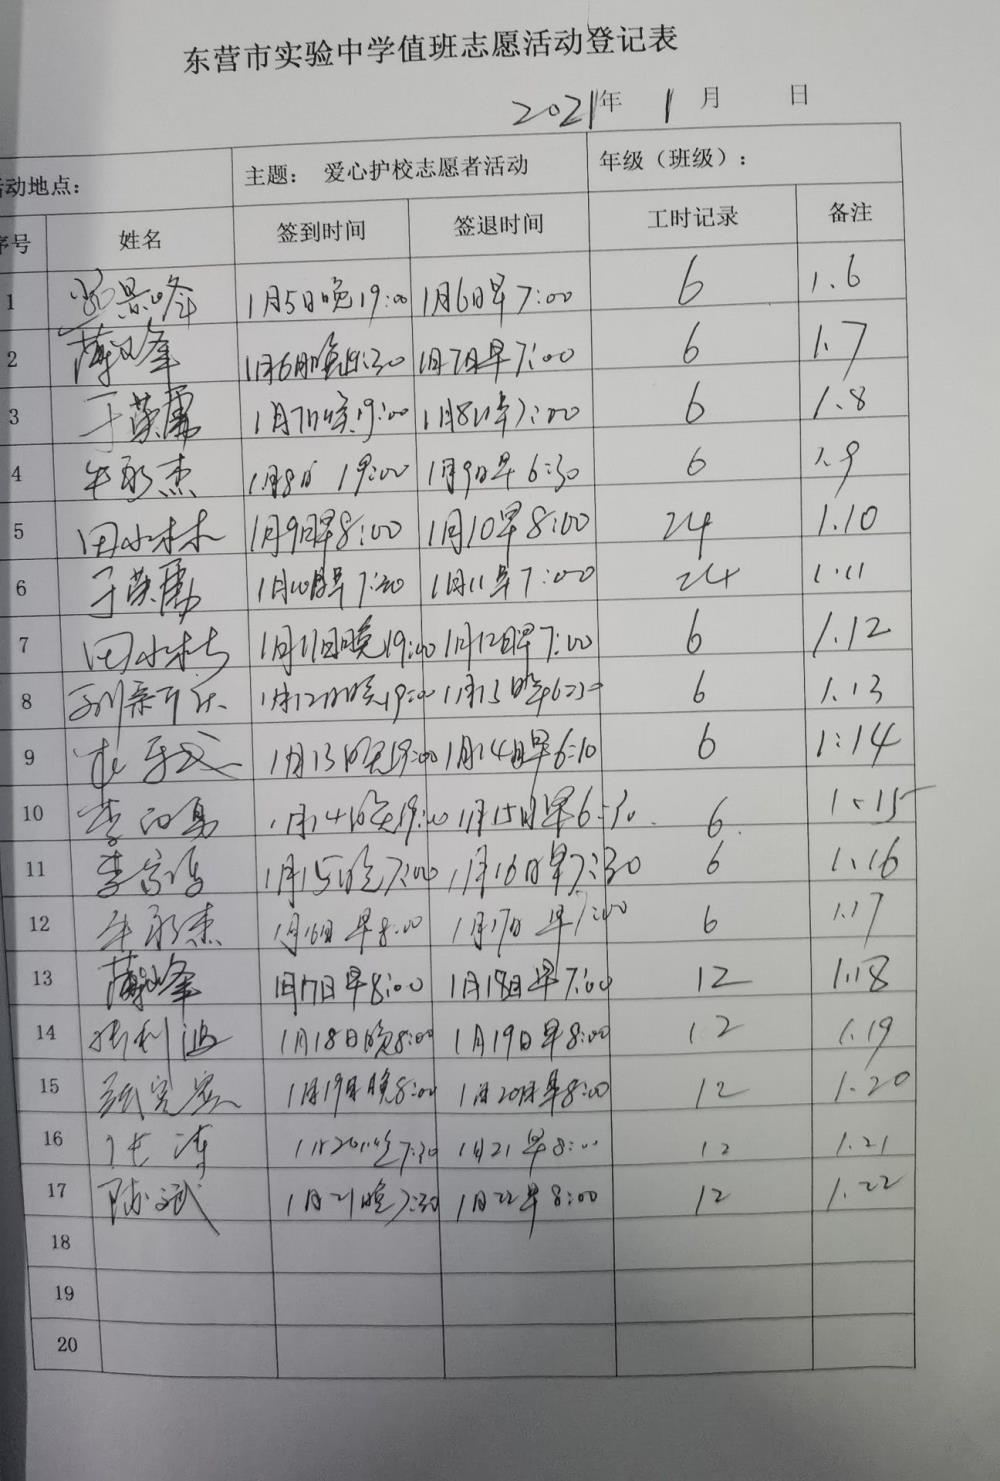 东营市实验中学值班志愿活动登记表
2021年 1 月 日
活动地点: 主题: 爱心护校志愿者活动 年级（班级）:
序号 姓名 签到时间 签退时间 工时记录 备注
1 景峰 1月5日晚19:00 1月6日早7:00 6 1.6
2 薄 峰 1月6日晚 :30 1月7日早7:00 6 1.7
3 于荣 1月7日晚19:00 1月8日早7:00 6 1.8
4 牛永杰 1月8日 19:00 1月9日早6:30 6 1.9
5 田水林 1月9日早8:00 1月10早8:00 24 1.10
6 于荣 1月10日早7:30 1月11早7:00 24 1.11
7 田水林 1月11日晚19:00 1月12日早7:00 6 1.12
8 1月12日晚19:00 1月13日早6:30 6 1.13
9 1月13日晚19:00 1月14日早6:10 6 1:14
10 李 勇 1月14日晚19:00 1月15日早6:30 6 1.15
11 李 1月15日晚7:00 1月16日早7:30 6 1.16
12 牛永杰 1月16日早8:00 1月17日早7:00 6 1.17
13 薄 峰 1月17日早8:00 1月18日早7:00 12 1.18
14 利波 1月18日晚8:00 1月19日早8:00 12 1.19
15 1月19日晚8:00 1月20日早8:00 12 1.20
16 张涛 1月20晚7:30 1月21早8:00 12 1.21
17 陈斌 1月21晚7:30 1月22早8:00 12 1.22
18
19
20